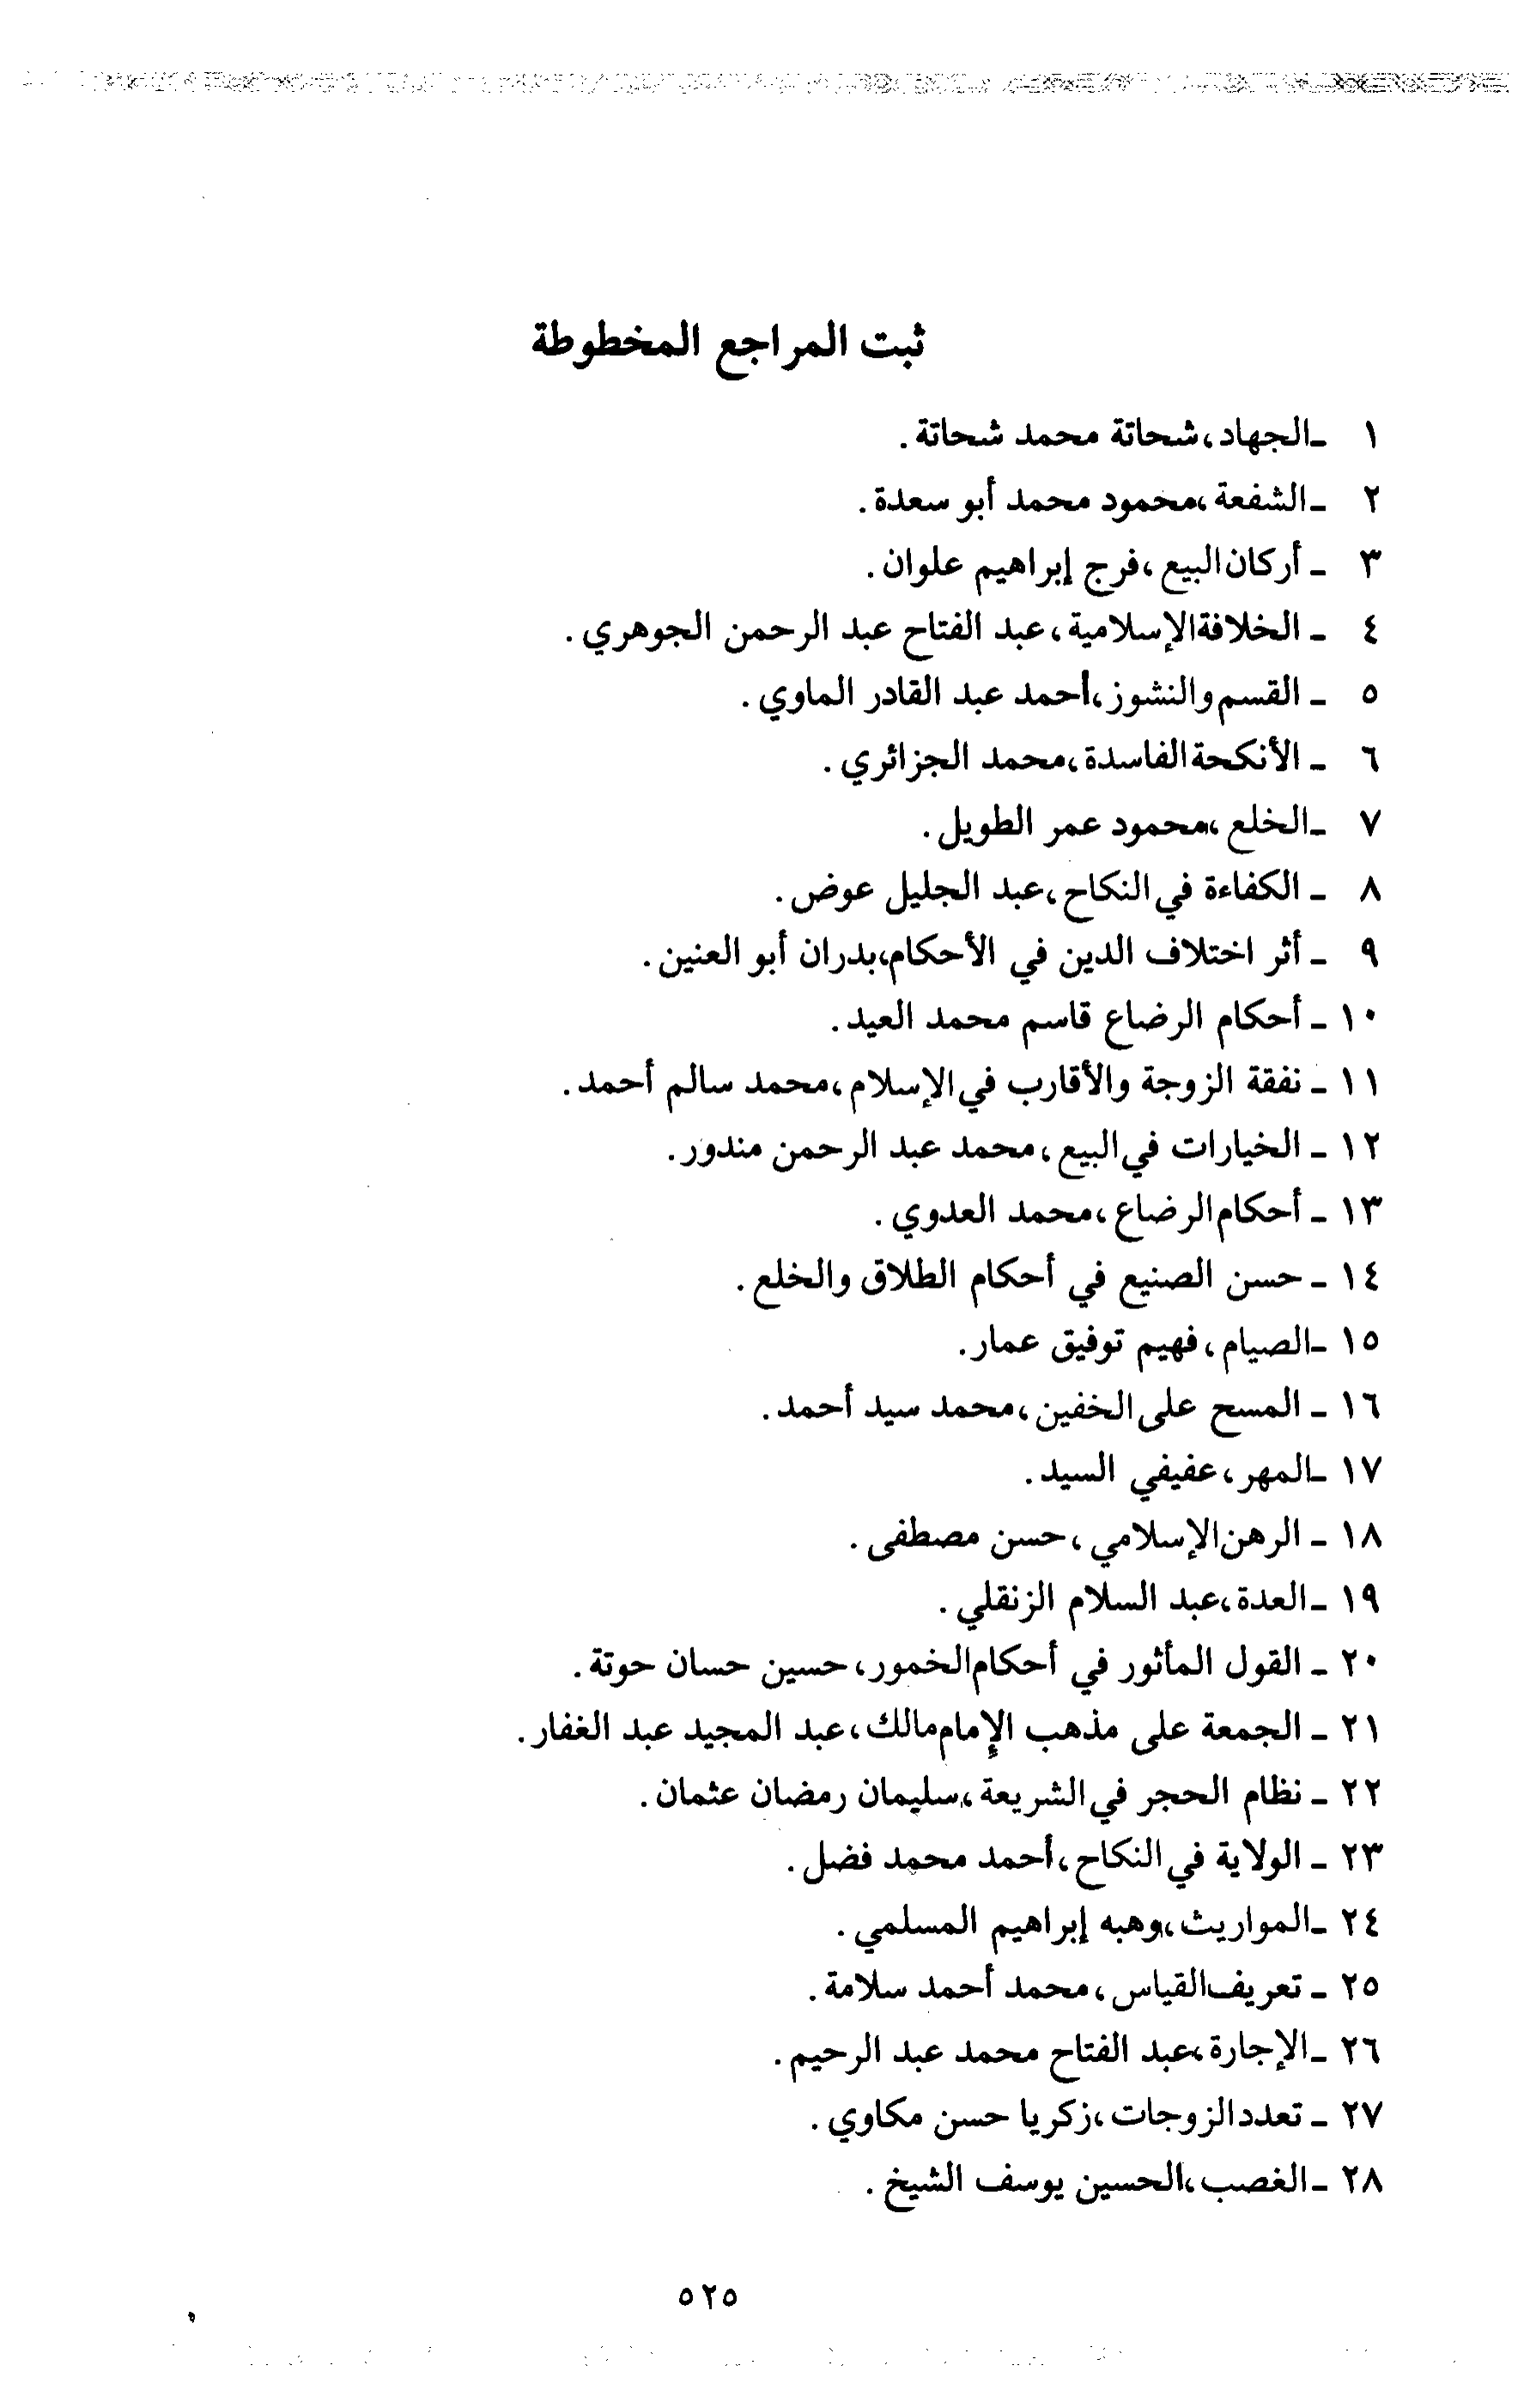 ثبت المراجع المخطوطة
١ ـ الجهاد، شحاتة محمد شحاتة .
٢ ـ الشفعة، محمود محمد أبو سعدة .
٣ ـ أركان البيع، فرج إبراهيم علوان .
٤ ـ الخلافة الإسلامية، عبد الفتاح عبد الرحمن الجوهري .
٥ ـ القسم والنشوز، أحمد عبد القادر الماوي .
٦ ـ الأنكحة الفاسدة، محمد الجزائري .
٧ ـ الخلع، محمود عمر الطويل .
٨ ـ الكفاءة في النكاح، عبد الجليل عوض .
٩ ـ أثر اختلاف الدين في الأحكام، بدران أبو العنين .
١٠ ـ أحكام الرضاع قاسم محمد العيد .
١١ ـ نفقة الزوجة والأقارب في الإسلام، محمد سالم أحمد .
١٢ ـ الخيارات في البيع، محمد عبد الرحمن مندور .
١٣ ـ أحكام الرضاع، محمد العدوي .
١٤ ـ حسن الصنيع في أحكام الطلاق والخلع .
١٥ ـ الصيام، فهيم توفيق عمار .
١٦ ـ المسح على الخفين، محمد سيد أحمد .
١٧ ـ المهر، عفيفي السيد .
١٨ ـ الرهن الإسلامي، حسن مصطفى .
١٩ ـ العدة، عبد السلام الزنقلي .
٢٠ ـ القول المأثور في أحكام الخمور، حسين حسان حوتة .
٢١ ـ الجمعة على مذهب الإمام مالك، عبد المجيد عبد الغفار .
٢٢ ـ نظام الحجر في الشريعة، سليمان رمضان عثمان .
٢٣ ـ الولاية في النكاح، أحمد محمد فضل .
٢٤ ـ المواريث، وهبه إبراهيم المسلمي .
٢٥ ـ تعريف القياس، محمد أحمد سلامة .
٢٦ ـ الإجارة، عبد الفتاح محمد عبد الرحيم .
٢٧ ـ تعدد الزوجات، زكريا حسن مكاوي .
٢٨ ـ الغصب، الحسين يوسف الشيخ .
٥٢٥